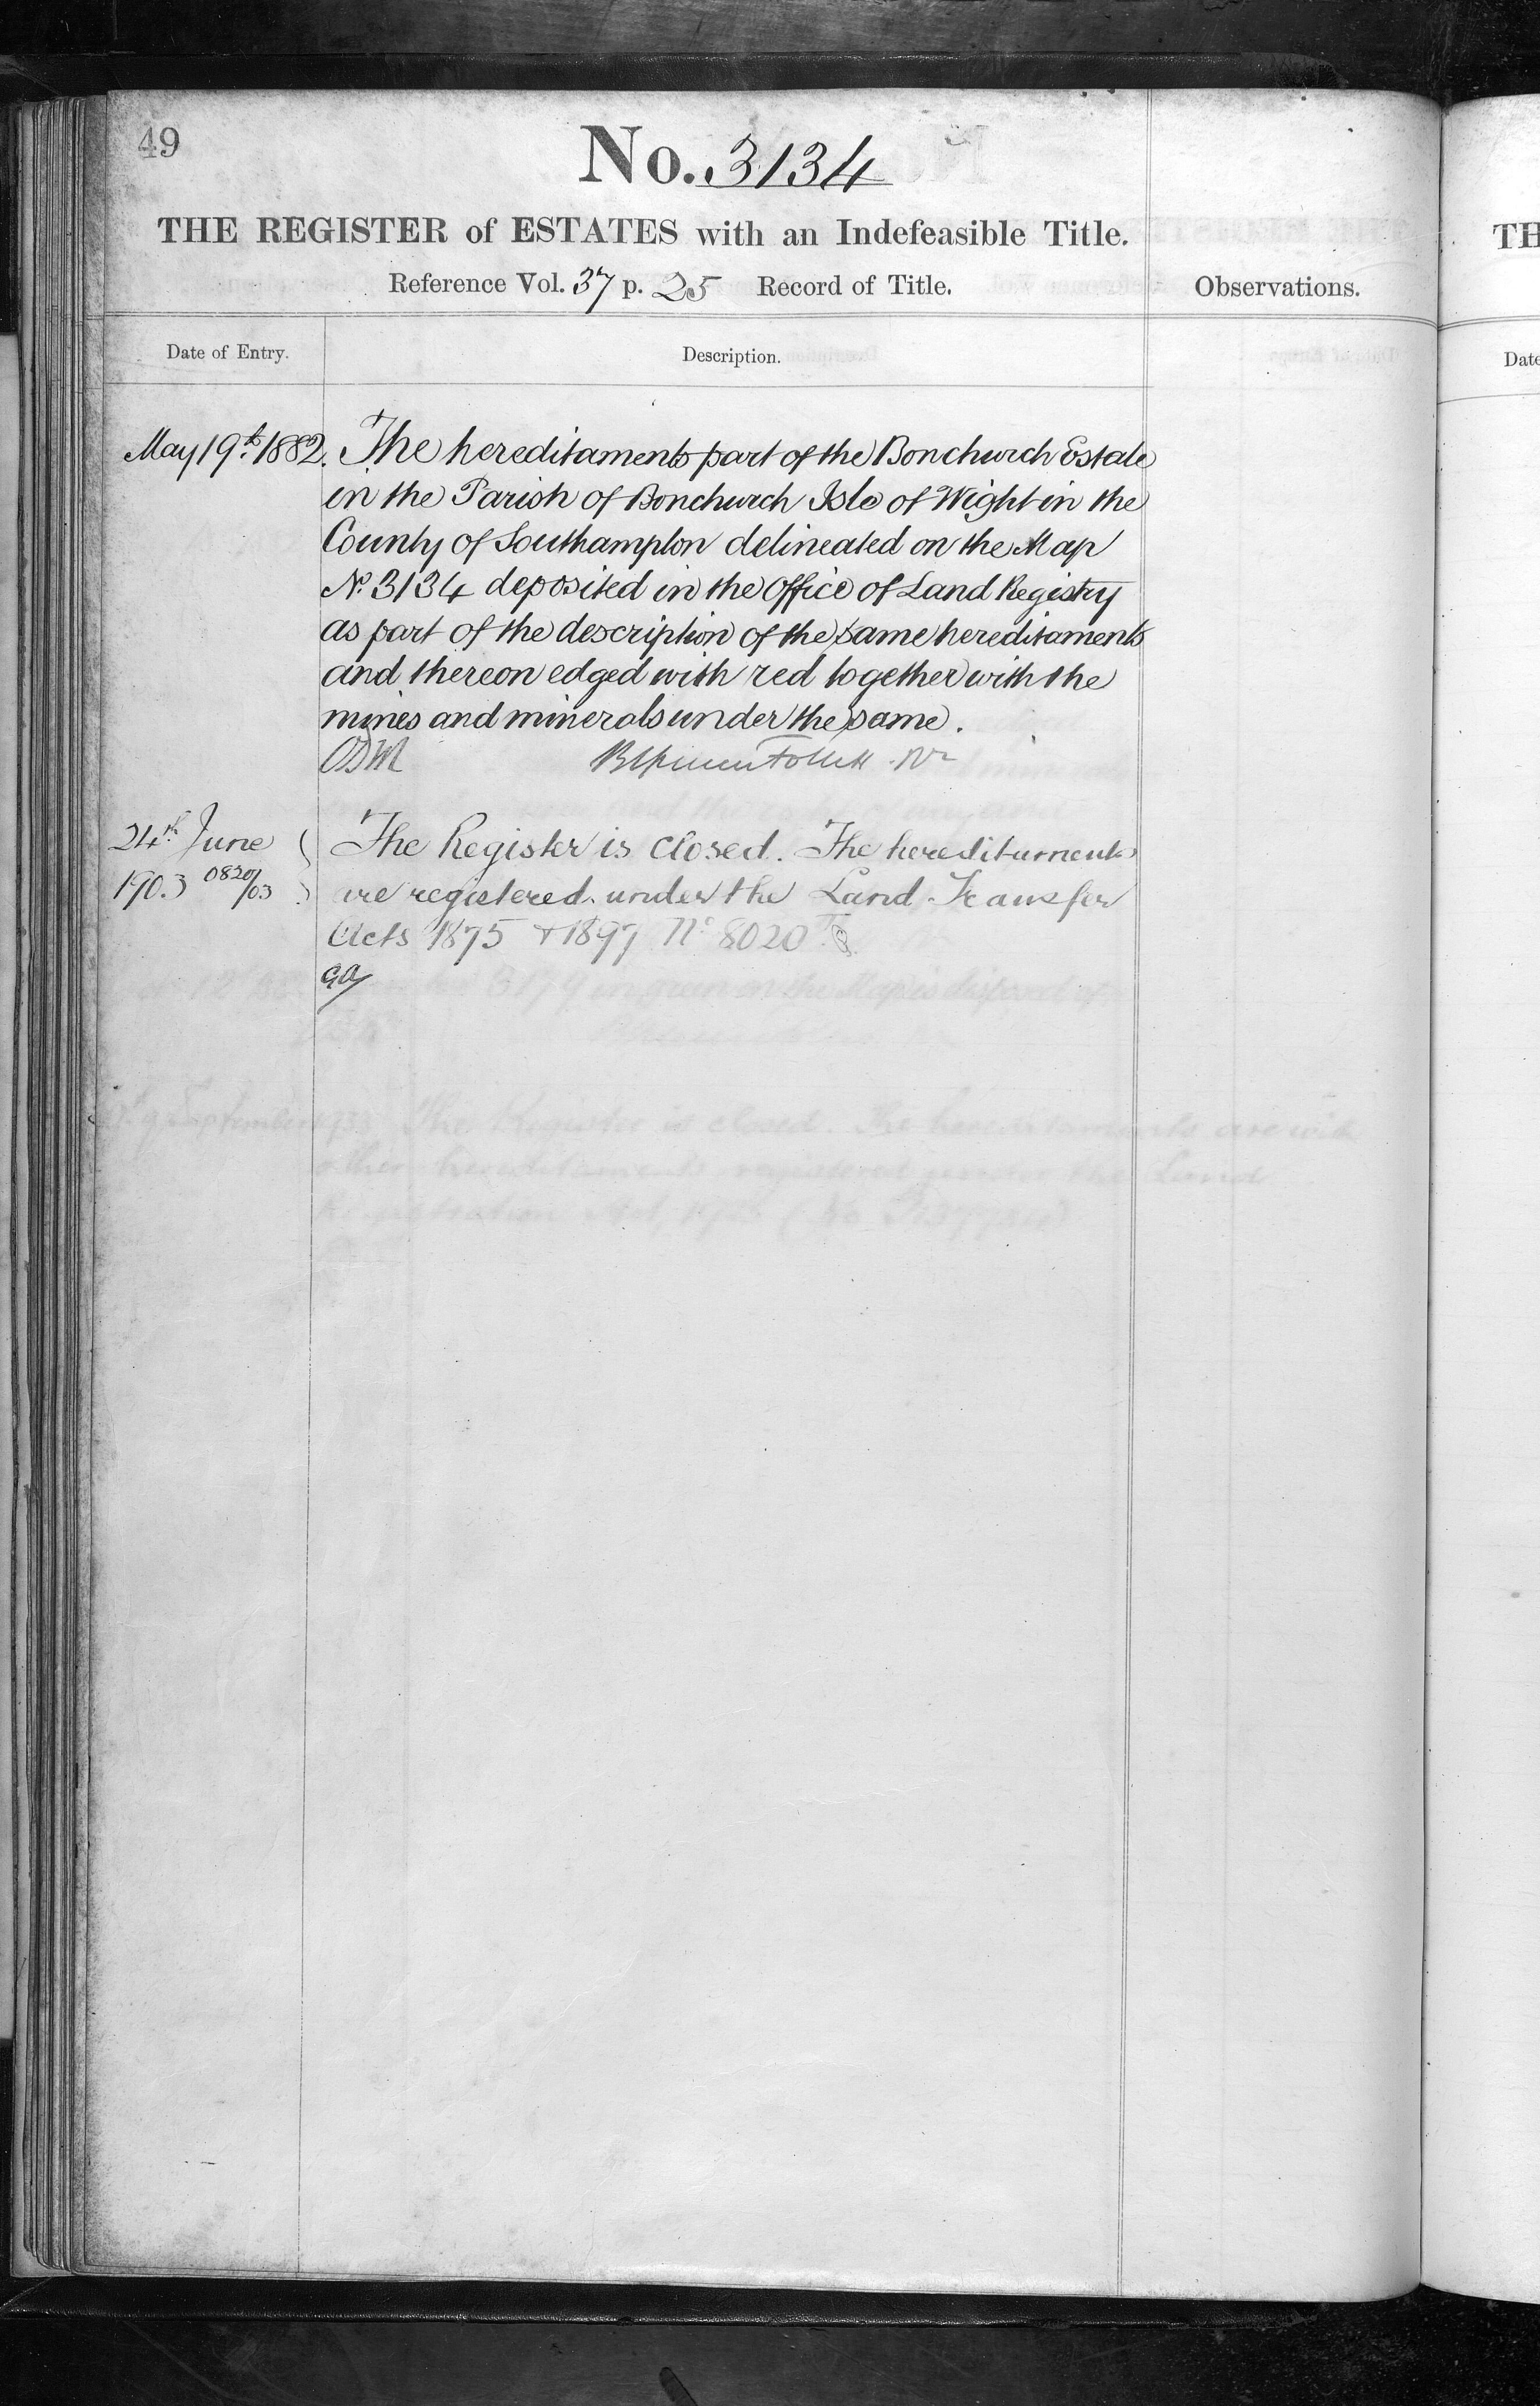 49
No. 3134
THE REGISTER of ESTATES with an Indefeasible Title.
Reference Vol. 37 p. 25 Record of Title.
Observations.
Date of Entry.
Description.
May 19th 1882. The hereditaments part of the Bonchurch Estate
in the Parish of Bonchurch Isle of Wight in the
County of Southampton delineated on the Map
No. 3134 deposited in the Office of Land Registry
as part of the description of the same hereditaments
and thereon edged with red together with the
mines and minerals under the same.
24th June The Register is closed. The hereditaments
1903 0820/03 are registered under the Land Transfer
Acts 1875 & 1897 No 8020
TH
Date